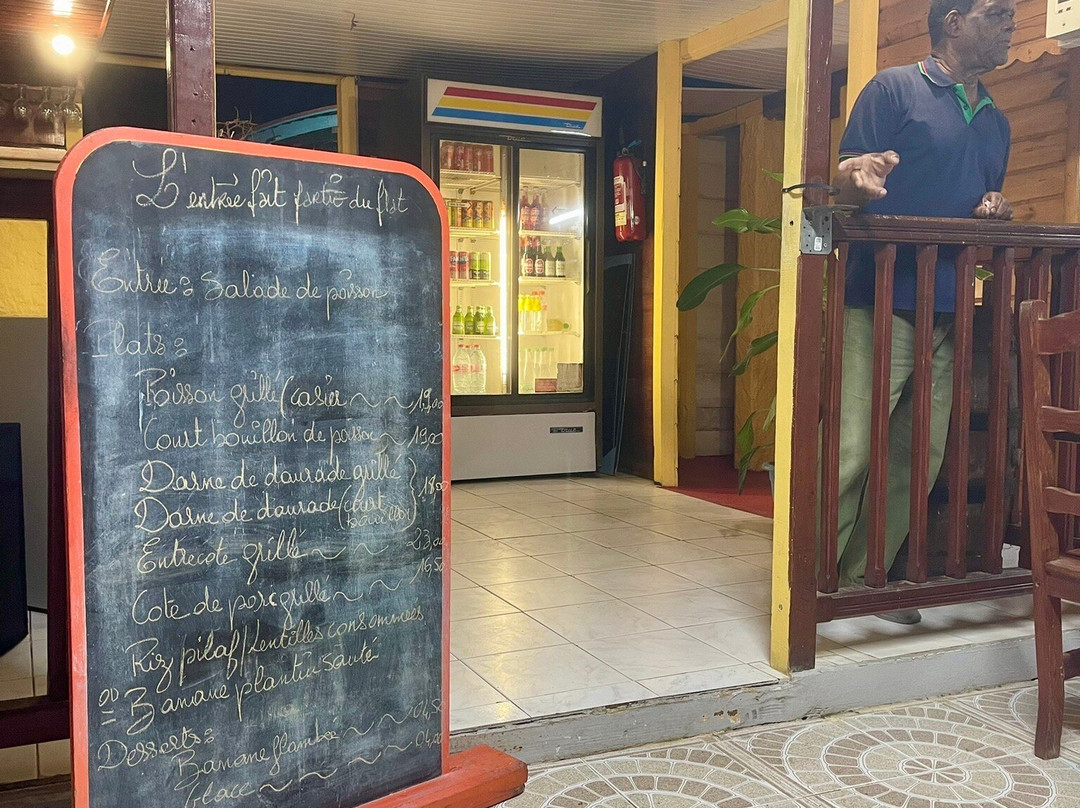 L'entrée fait partie du plat
Entrée: Salade de poisson
Plats:
Poisson grillé/casier ~ ~ 19,00
Court bouillon de poisson ~ 19,00
Darne de daurade grillé
Darne de daurade (court bouillon) } 18,00
Entrecote grillé ~ ~ ~ 23,00
Cote de porc grillé ~ ~ ~ 16,50
Riz pilaf/Lentilles consommées
Banane plantin sauté
Desserts:
Banane flambée ~ ~ 04,50
Glace ~ ~ ~ ~ 04,00